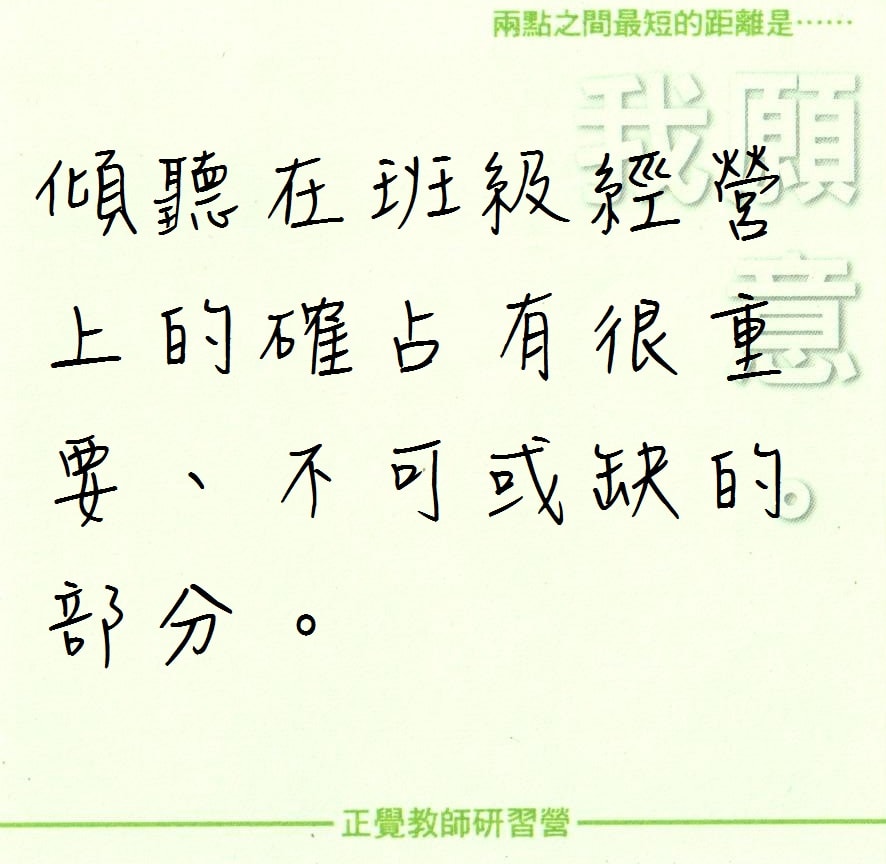 兩點之間最短的距離是……
我願
意。
傾聽在班級經營
上的確占有很重
要、不可或缺的
部分。
正覺教師研習營